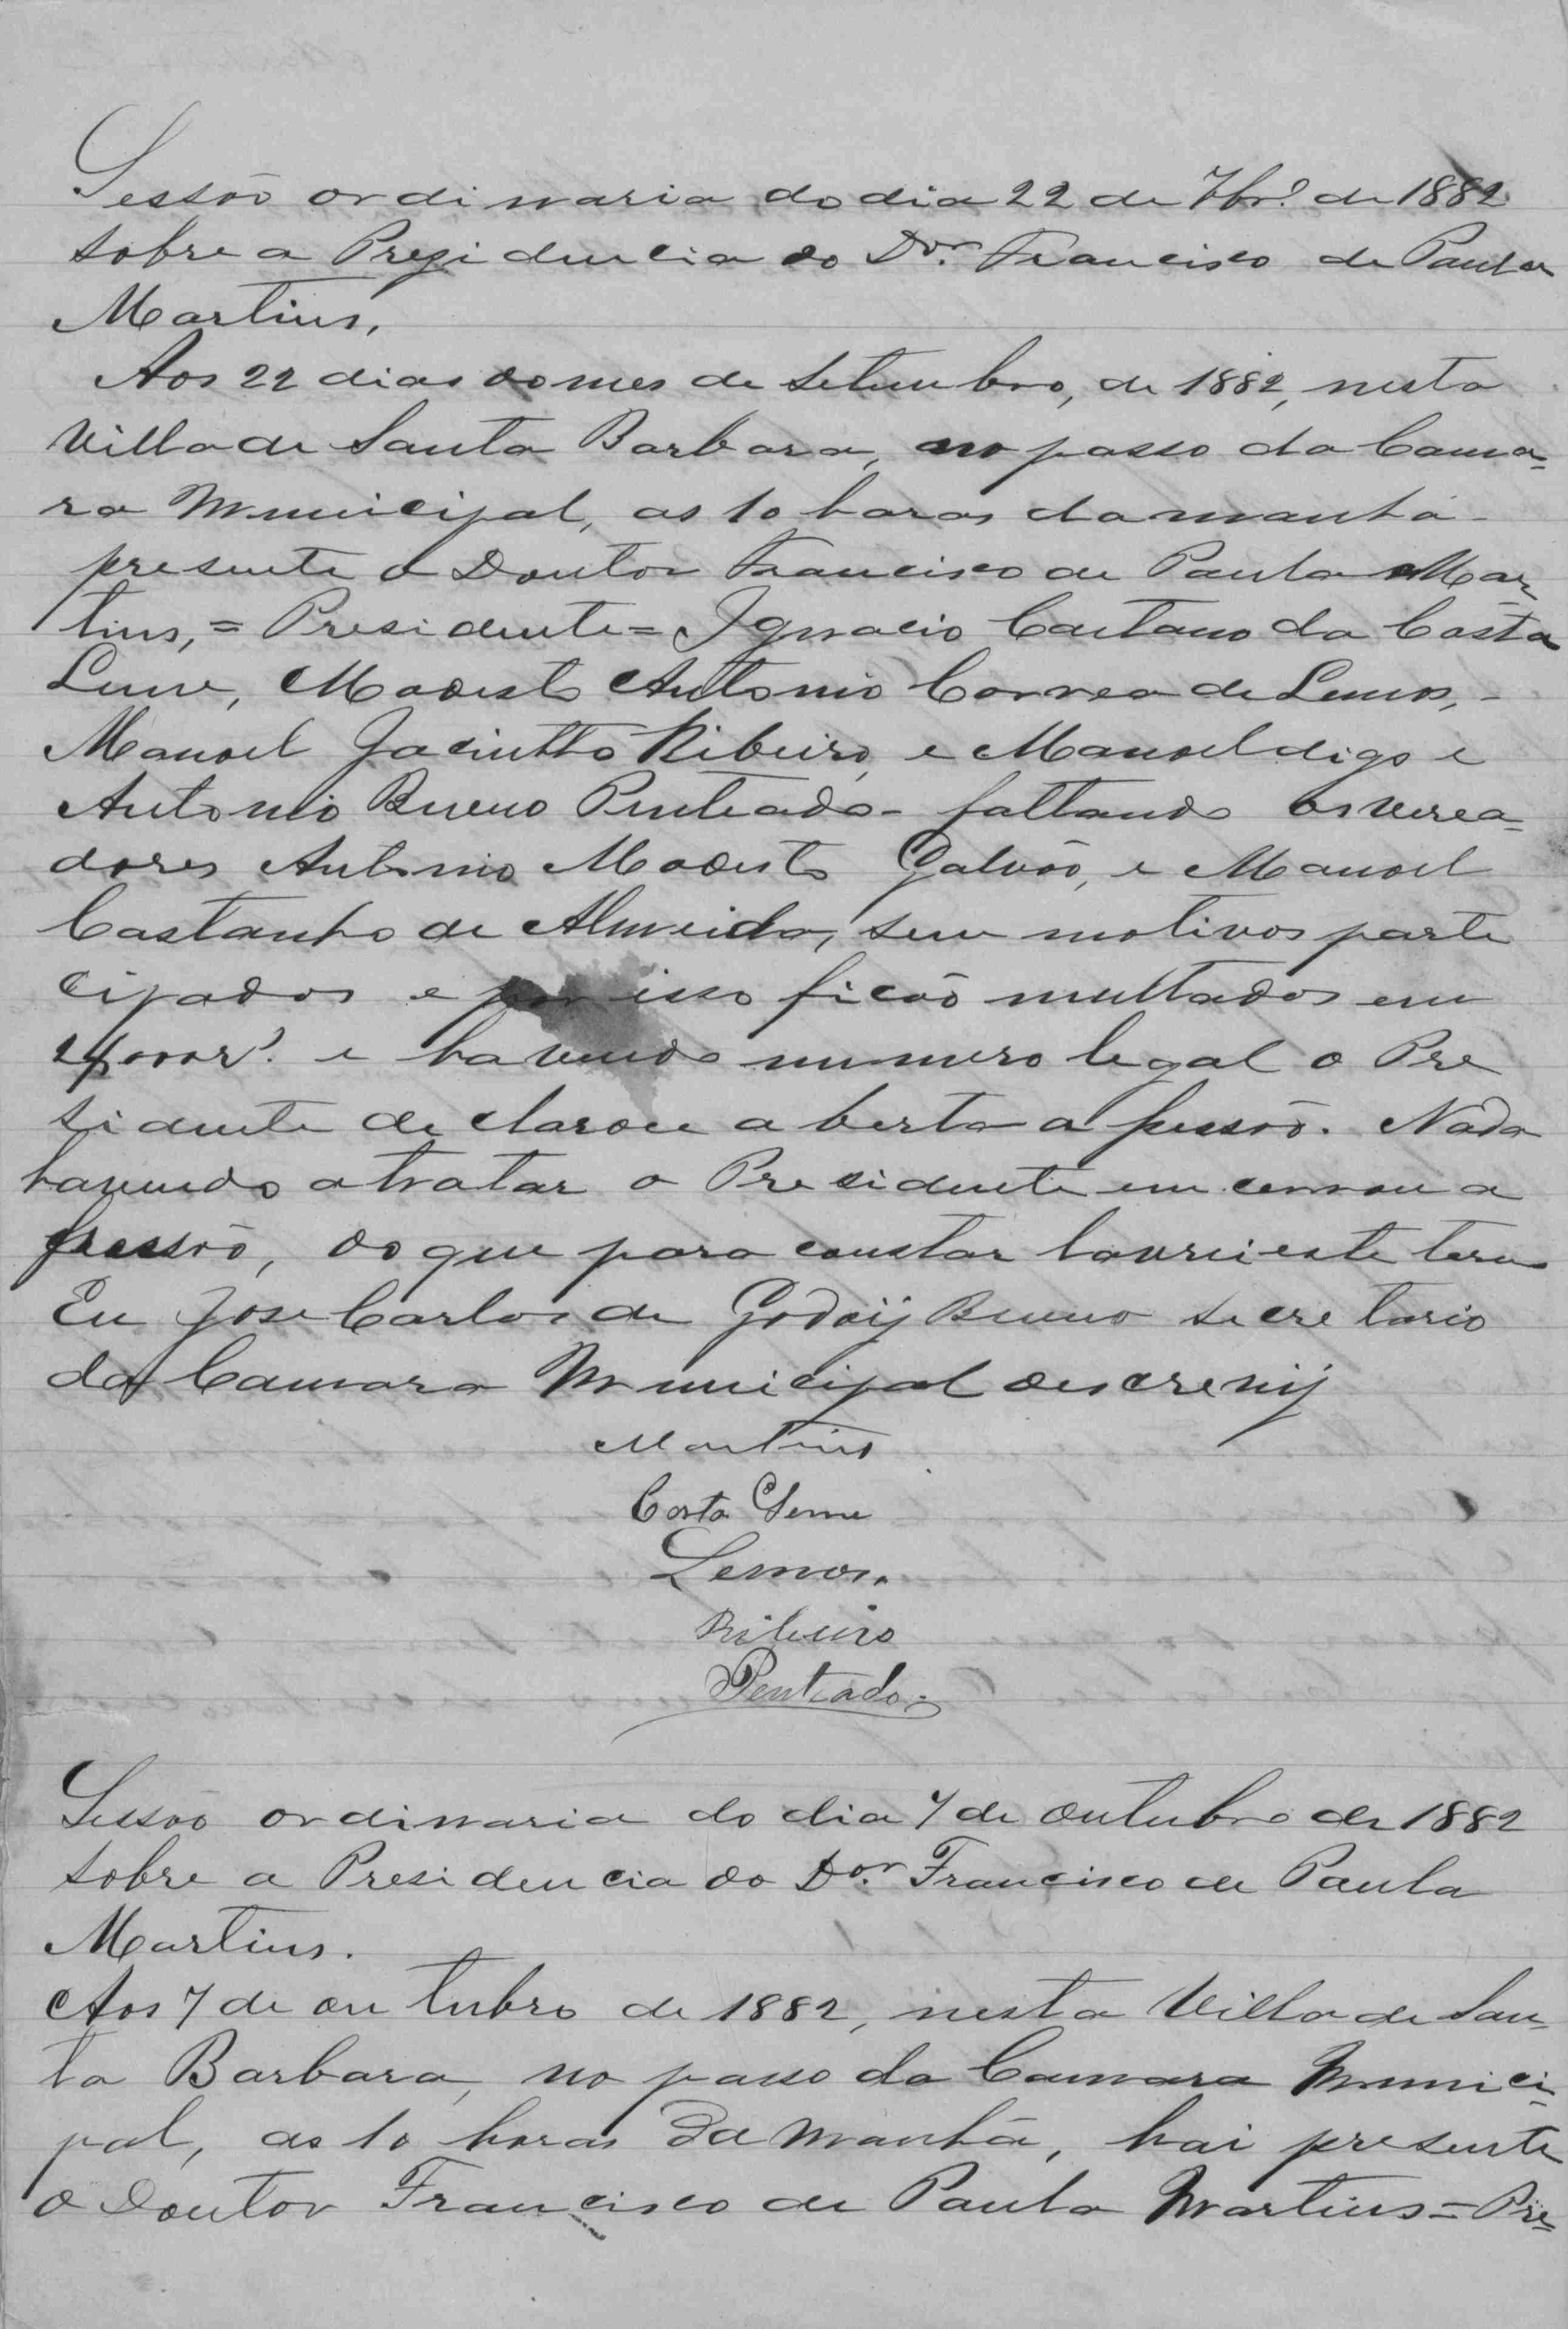 Sessão ordinaria do dia 22 de 7br.º de 1882
sobre a Prezidencia do Dor. Francisco de Paula
Martins,
Aos 22 dias do mes de Setembro, de 1882, nesta
Villa de Santa Barbara, no passo da Cama=
ra Municipal, as 10 horas da manhã
presente o Doutor Francisco de Paula Mar
tins, = Presidente = Ignacio Caetano da Costa
Leme, Modesto Antonio Correa de Lemos, -
Manoel Jacintho Ribeiro, e Manoel digo e
Antonio Bueno Penteado - faltando os verea=
dores Antonio Modesto Galvão, e Manoel
Castanho de Almeida, sem motivos parte
cipados e por isso ficão multados em
e havendo numero legal o Pre
sidente declarou aberta a sessão. Nada
havendo a tratar o Presidente emcerrou a
sessão, do que para constar lavrei este termo
Eu Jose Carlos de Godoij Bueno secretario
da Camara Municipal o escrevij
Martins
Costa Leme
Lemos.
Ribeiro
Penteado.
Sessão ordinaria do dia 7 de outubro de 1882
sobre a Presidencia do Dor. Francisco de Paula
Martins.
Aos 7 de outubro de 1882, nesta Villa de San=
ta Barbara, no passo da Camara Munici=
pal, as 10 horas da manhã, hai presente
o Doutor Francisco de Paula Martins = Pre=